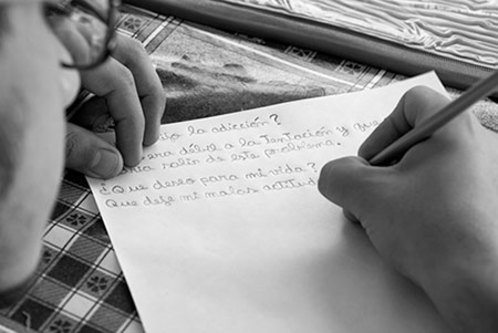 la adicción?
era débil a la tentación y que
salir de este problema.
¿Que deseo para mi vida?
Que deje mi malas actitud